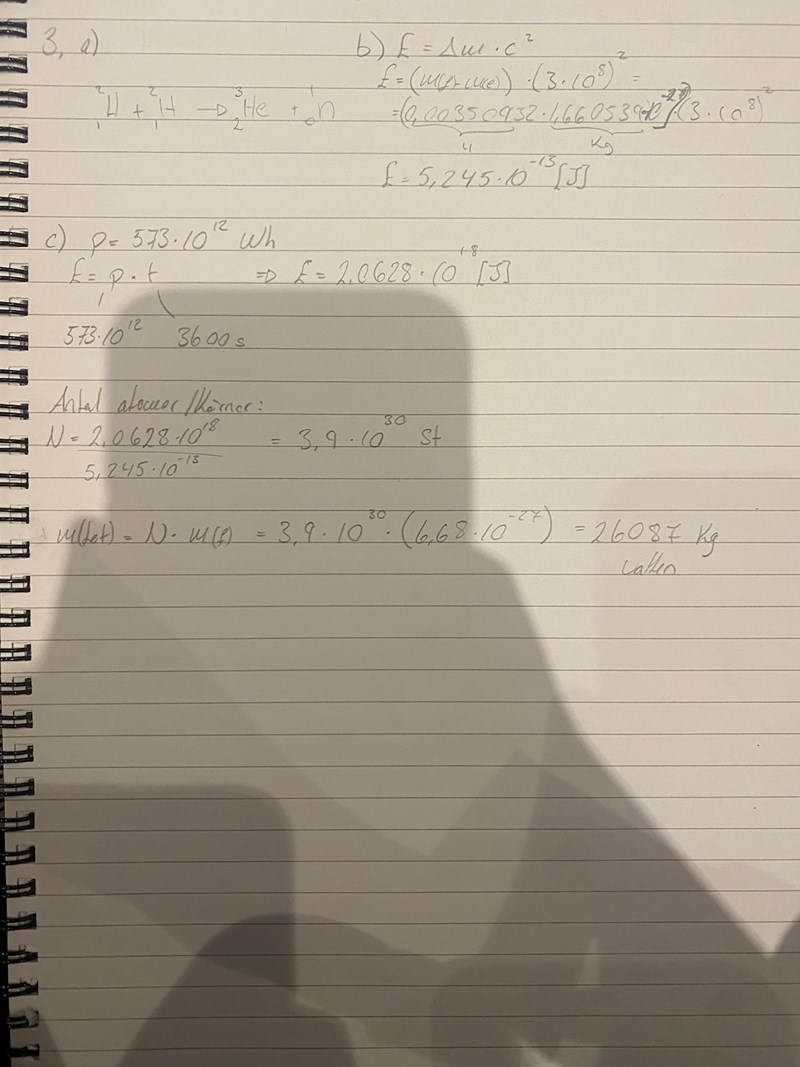 3, a)
²₁H + ²₁H → ³₂He + ¹₀n
b) E = Δm · c²
E = (m(f) - m(e)) · (3·10⁸)² =
= (0,00350932 · 1,660539·10⁻²⁷) · (3·10⁸)²
u kg
E = 5,245·10⁻¹³ [J]
c) P = 573·10¹² Wh
E = p · t ⇒ E = 2,0628·10¹⁸ [J]
573·10¹² 3600 s
Antal atomer/Kärnor:
N = 2,0628·10¹⁸ / 5,245·10⁻¹³ = 3,9·10³⁰ st
m(tot) = N · m(f) = 3,9·10³⁰ · (6,68·10⁻²⁷) = 26087 kg
vatten